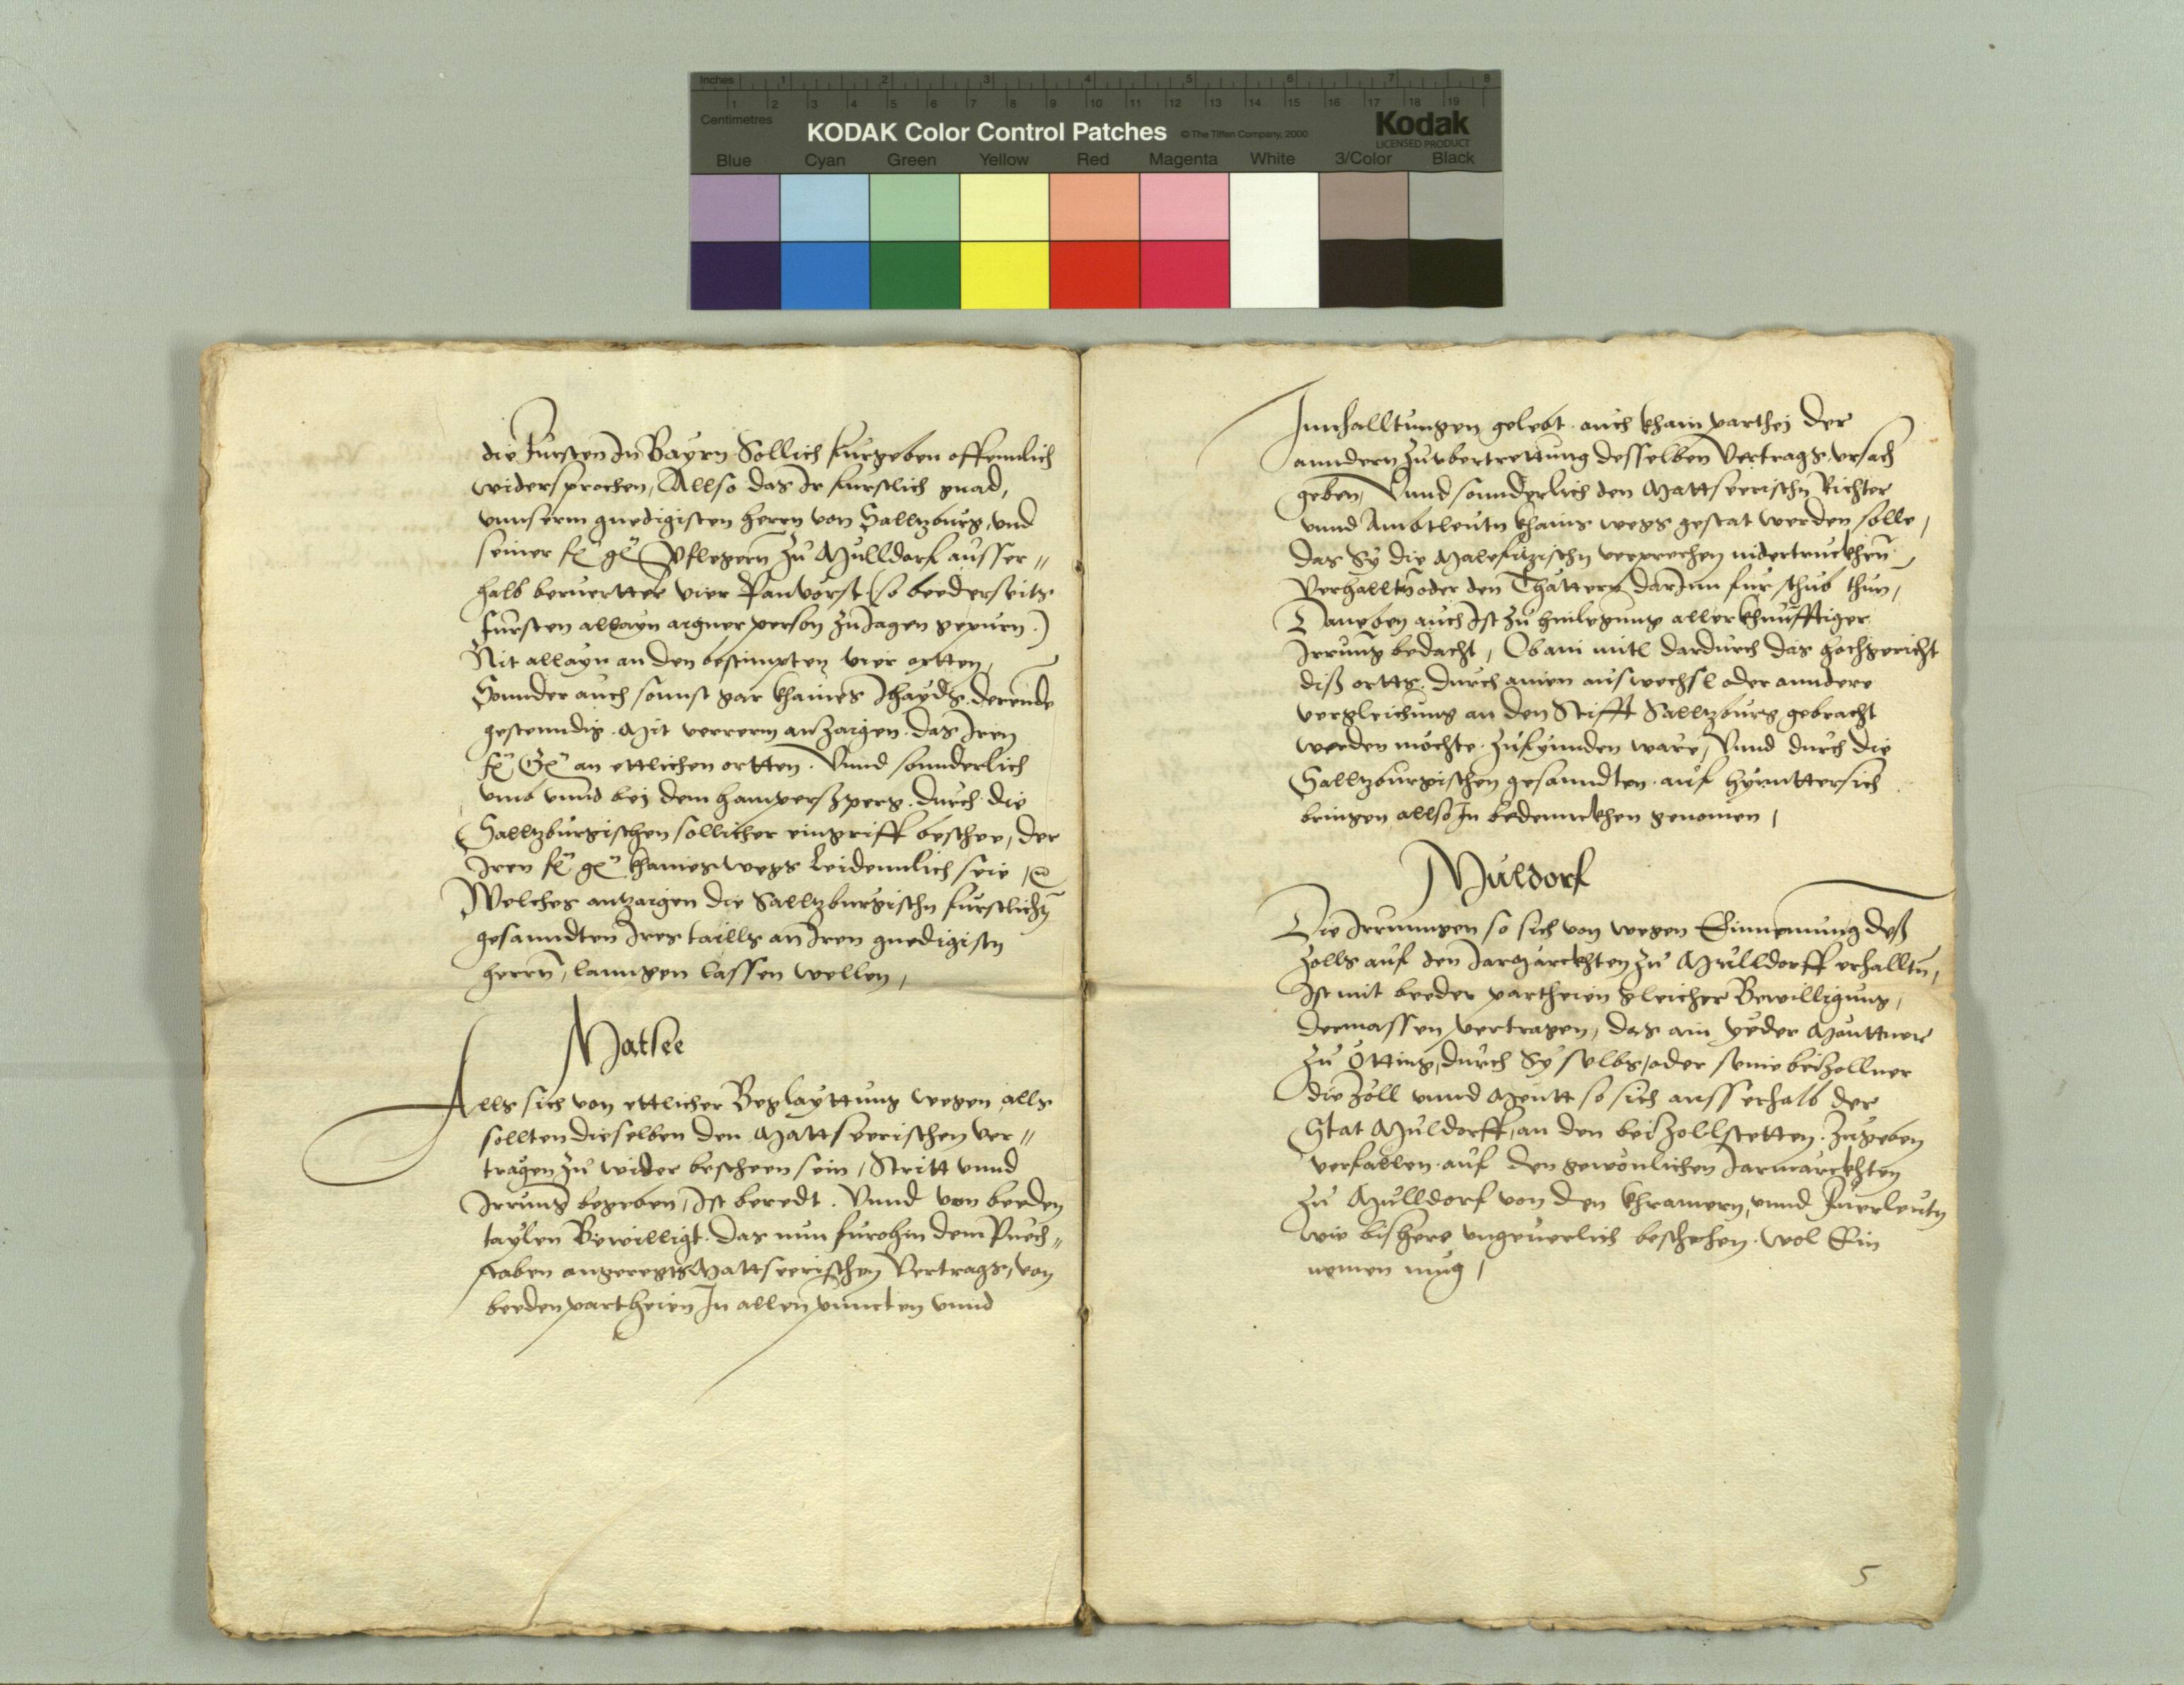 Inches 1 2 3 4 5 6 7 8
1 2 3 4 5 6 7 8 9 10 11 12 13 14 15 16 17 18 19
Centimetres
KODAK Color Control Patches © The Tiffen Company, 2000
Kodak
LICENSED PRODUCT
Blue Cyan Green Yellow Red Magenta White 3/Color Black
die Fursten In Bayrn Sollich furgeben offennlich
widersprochen, Allso das Ir furstlich gnad,
unnserm gnedigisten herrn von Salltzburg, und
seiner fr gr Pflegern zu Mulldorf ausser//
halb beruertter vier Panvörst (so beederseits
fursten allayn aigner person zu Jagen gepurn)
Nit allayn an den bestimpten vier ortten,
Sonnder auch sonnst gar khaines Jhayds derennde
gestenndig. Mit vererm anzaigen. das Iren
fr Gr an ettlichen ortten. Unnd sonnderlich
umb unnd bei dem hamperßperg. durch die
Salltzburgischen sollicher eingriff beschee, der
Iren fr gr khaineswegs leidennlich seie,
Welches antzaigen die Salltzburgischn furstlichn
gesanndten Ires taills an Iren gnedigistn
herrn, lanngen lassen wellen,
Matsee
Alls sich von ettlicher Beglayttung wegen alls
sollten dieselben den Mattseerischen ver//
tragen zu wider bescheen sein, Stritt unnd
Irrung begeben, Ist beredt. Unnd von beeden
taylen Bewilligt. das nun furohin dem Puech//
staben angeregts Mattseerischen Vertrags, von
beeden partheien In allen puncten unnd
Innhalltungen gelebt. auch khain parthej der
anndern zu ubertrettung desselben Vertrags ursach
geben, Unnd sonnderlich den Mattseerischn Richter
unnd Ambtleutn khains wegs gestat werden solle,
das Sy die Malefitzischn verprechen nidertruckhen
Verhalltn oder den Thättern darInn furschub thun,
Daneben auch Ist zu hinlegung aller khunfftiger
Irrung bedacht, Ob ain mitl dardurch das hochgericht
diß ortts. durch ainen auswechsl oder anndere
vergleichung an den Stifft Salltzburg gebracht
werden möchte. zufynnden ware, Unnd durch die
Salltzburgischen gesanndten auf hynndtersich
bringen allso In bedennckhen genomen,
Muldorf
Die Irrungen so sich von wegen Einnemung deß
Zolls auf den Jarmärckhten zu Mulldorff erhalltn,
Ist mit beeder partheien gleicher Bewilligung,
dermassen vertragen, das ain yeder Mauttner
zu Ötting, durch Sy selbs, oder seine beizollner
die zöll unnd Meutt so sich ausserhalb der
Stat Muldorff, an den beizollstetten. zugeben
verfallen. auf den gewonlichen Jarmärckhten
zu Mulldorf von den khramern, unnd fuerleutn
wie bisheere ungeverlich beschehen. wol Ein
nemen mug,
5